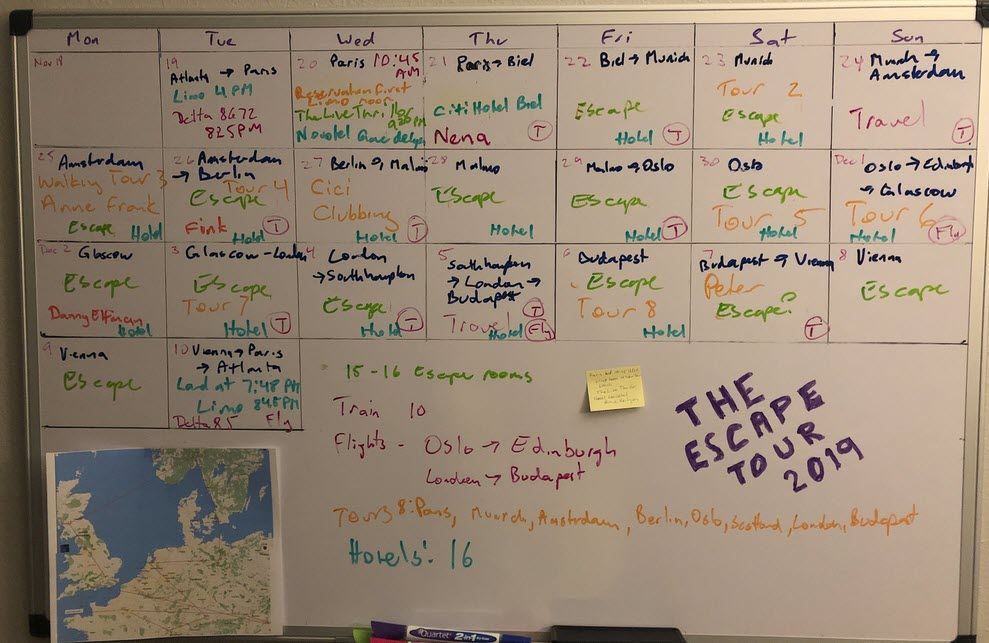 Mon Tue Wed Thu Fri Sat Sun
Nov 18
19
Atlanta → Paris
Limo 4 PM
Delta 8672
825PM
20 Paris 10:45
AM
Reservation first
Limo noon
The Live Thriller
Novotel Gare de
21 Paris → Biel
Citi Hotel Biel
Nena T
22 Biel → Munich
Escape
Hotel T
23 Munich
Tour 2
Escape
Hotel
24 Munich →
Amsterdam
Travel T
25 Amsterdam
Walking Tour 3
Anne Frank
Escape Hotel
26 Amsterdam
→ Berlin
Tour 4
Escape
Fink Hotel T
27 Berlin → Malmo
Cici
Clubbing
Hotel T
28 Malmo
Escape
Hotel
29 Malmo → Oslo
Escape
Hotel T
30 Oslo
Escape
Tour 5
Hotel
Dec 1 Oslo → Edinburgh
→ Glascow
Tour 6
Hotel Fly
Dec 2 Glascow
Escape
Danny Elfman
Hotel
3 Glascow - London
Escape
Tour 7
Hotel T
4 London
→ Southhampton
Escape
Hotel T
5 Southhampton
→ London →
Budapest T
Travel Hotel Fly
6 Budapest
Escape
Tour 8
Hotel
7
Budapest → Vienna
Peter
Escape?
T
8 Vienna
Escape
9 Vienna
Escape
10 Vienna → Paris
→ Atlanta
Land at 7:48 PM
Limo 845PM
Delta 85 Fly
15-16 Escape rooms
Train 10
Flights - Oslo → Edinburgh
London → Budapest
Tours 8: Paris, Munich, Amstrdam, Berlin, Oslo, Scotland, London, Budapest
Hotels: 16
THE
ESCAPE
TOUR
2019
Quartet 2in1